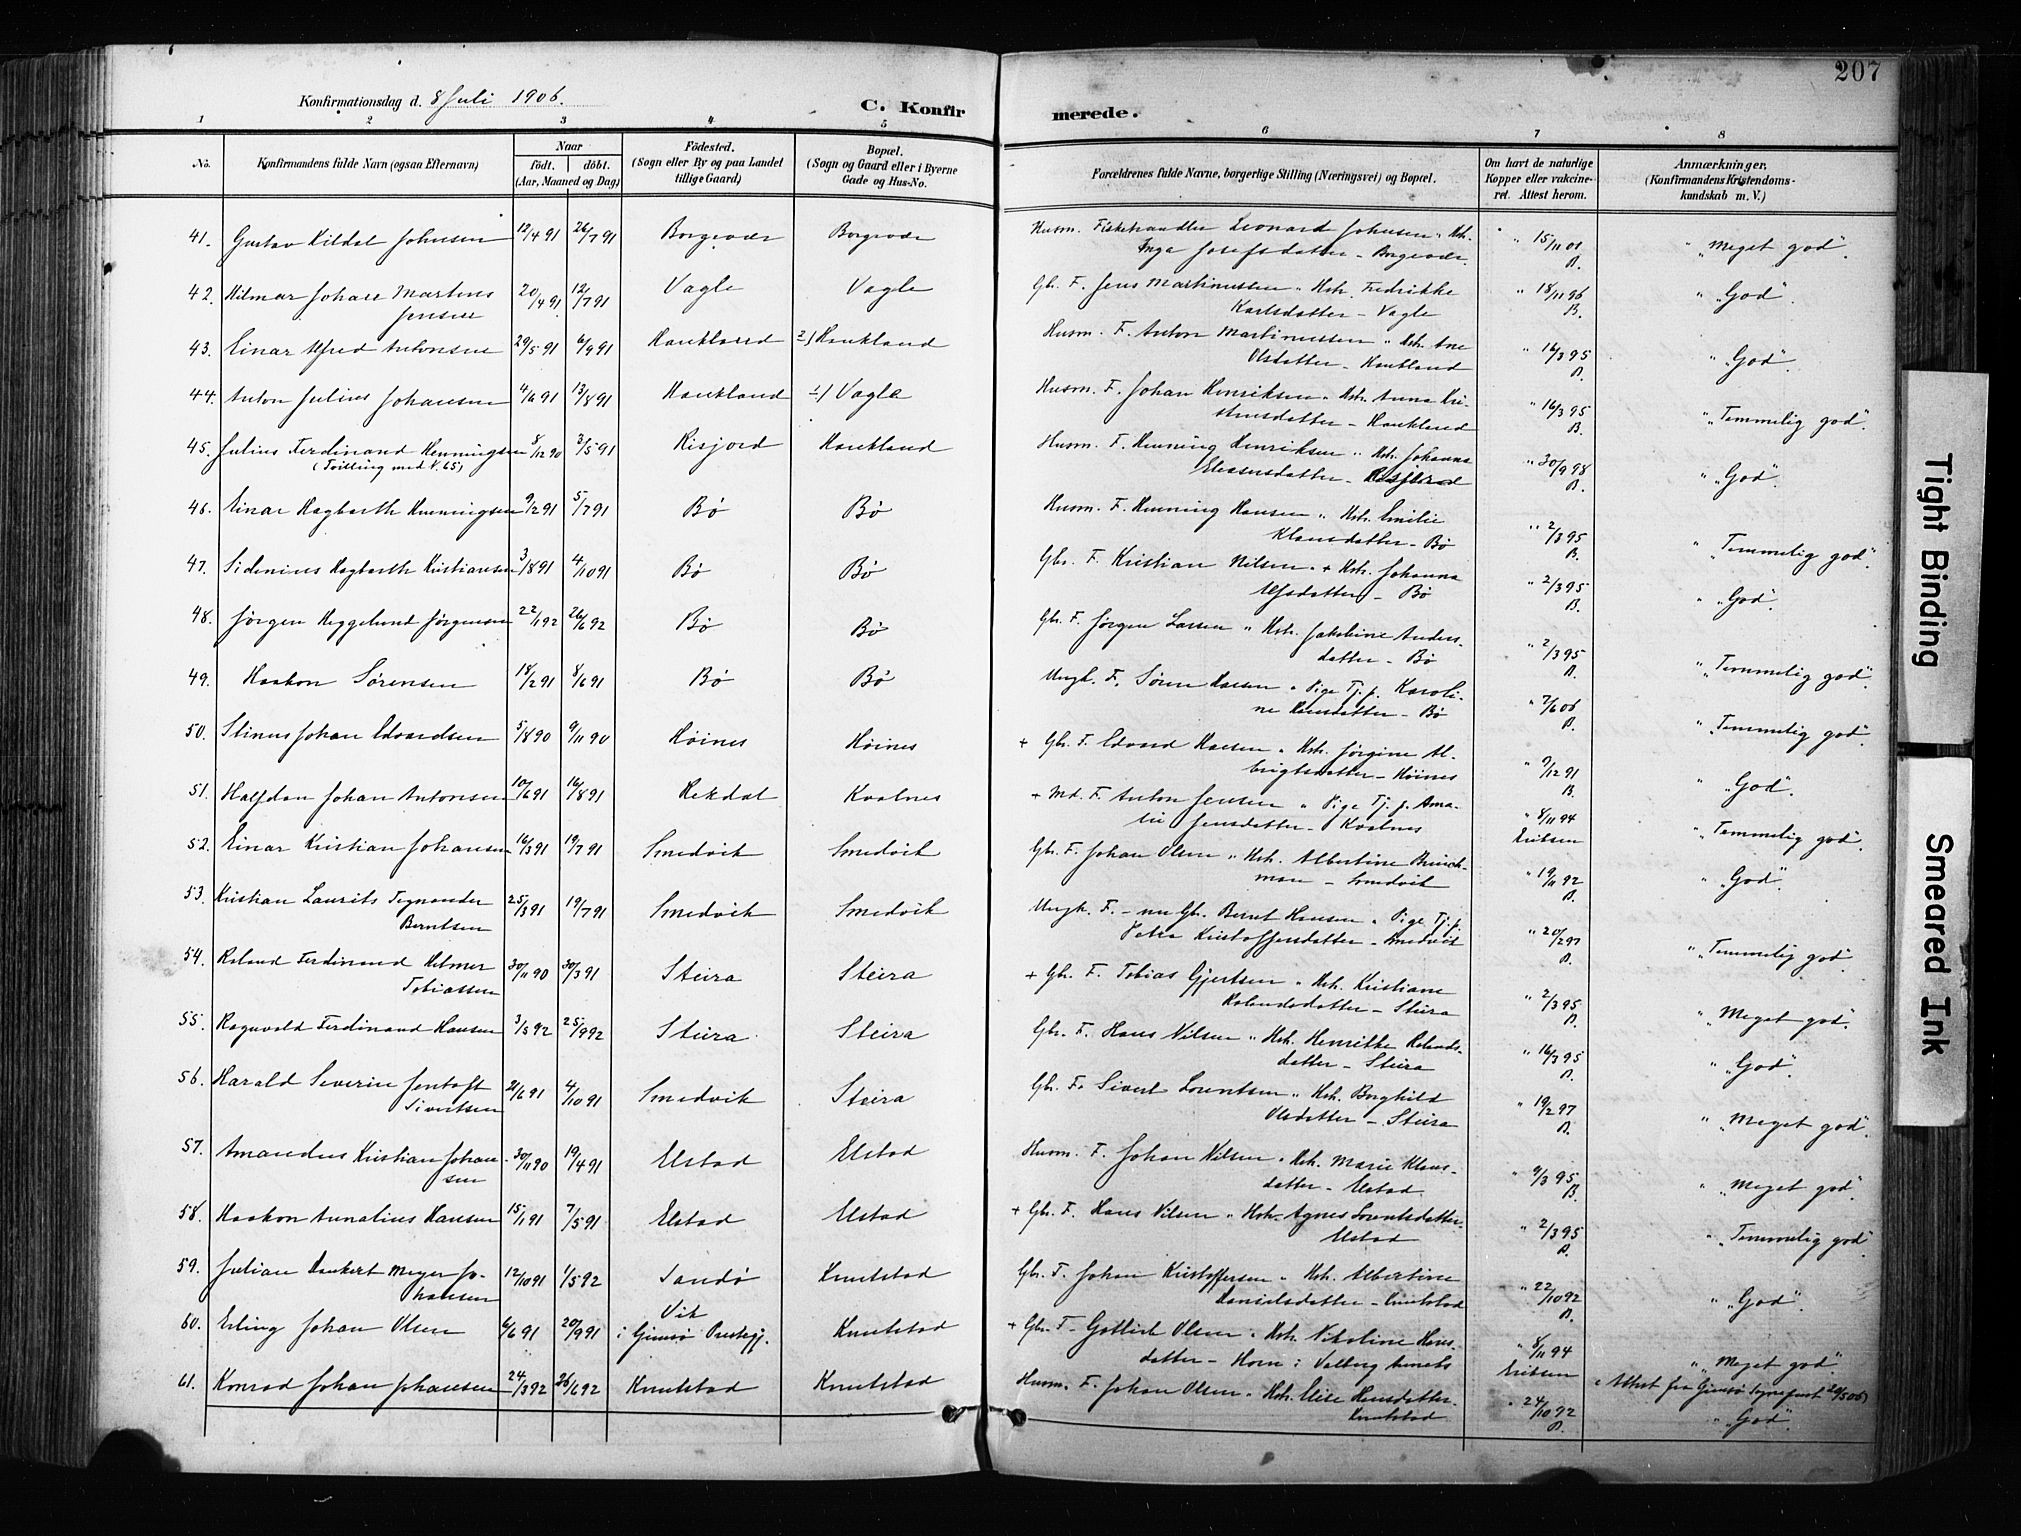 207
Konfirmationsdag d. 8 Juli 1906.
C. Konfirmerede.
1 2 3 4 5 6 7 8
No. Konfirmandens fulde Navn (ogsaa Efternavn) Naar født. døbt. (Aar, Maaned og Dag) Fødested. (Sogn eller By og paa Landet tillige Gaard) Bopæl. (Sogn og Gaard eller i Byerne Gade og Hus-No. Forældrenes fulde Navne, borgerlige Stilling (Næringsvei) og Bopæl. Om havt de naturlige Kopper eller vakcineret. Attest herom. Anmærkninger. (Konfirmandens Kristendomskundskab m. V.)
41. Gustav Kildal Johnsen 12/4 91 26/7 91 Borgevær Borgevær Husm. Fiskehandler Leonard Johnsen " Hst.
Inga Josefsdatter - Borgevær. " 15/11 01 B. " "Meget god".
42. Hilmar Johan Martens 20/4 91 12/7 91 Vagle Vagle Gbr. F. Jens Martinussen " Hst. Fredrikke
Jensen Karlsdatter - Vagle " 18/11 96 B. " "God".
43. Einar Alfred Antonsen 29/5 91 6/9 91 Haukland 2) Haukland Husm. F. Anton Martinussen " Hst. Ane
Olsdatter - Haukland " 16/3 95 B. " "God".
44. Anton Julius Johansen 4/6 91 13/8 91 Haukland 1) Vagle Husm. F. Johan Henriksen " Hst. Anna Kri-
stensdatter - Haukland " 16/3 95 B. " "Temmelig god".
45. Julius Ferdinand Henningsen 8/12 90 3/5 91 Risjord Haukland Husm. F. Henning Henriksen " Hst. Johanna
(Tvilling med N. 65) Eliasensdatter - " 30/9 98 B. " "God".
46. Einar Hagbarth Henningsen 9/2 91 5/7 91 Bø Bø Husm. F. Henning Hansen " Hst. Emilie
Klausdatter - Bø " 2/3 95 B. " "Temmelig god".
47. Sidenius Hagbarth Kristiansen 3/8 91 4/10 91 Bø Bø Gbr. F. Kristian Nilsen " + Hst. Johanna
Alfsdatter - Bø " 2/3 95 B. " "God".
48. Jørgen Heggelund Jørgensen 22/1 92 26/6 92 Bø Bø Gbr. F. Jørgen Larsen " Hst. Jakobine Anders-
datter - Bø " 2/3 95 B. " "Temmelig god".
49. Haakon Sørensen 18/2 91 8/6 91 Bø Bø Ungk. F. Søren Hansen " Pige Tj. p. Karoli-
ne Hansdatter - Bø " 7/6 06 B. " "Temmelig god".
50. Stinus Johan Edvardsen 5/8 90 9/11 90 Høines Høines + Gbr. F. Edvard Hansen " Hst. Jørgine Al-
brigtsdatter - Høines " 9/12 91 B. " "God".
51. Halfdan Johan Antonsen 10/6 91 16/8 91 Rekdal Kvalnes + Md. F. Anton Jensen " Pige Tj. p. Ama-
lie Jensdatter - Kvalnes " 8/11 94 Eriksen " "Temmelig god".
52. Einar Kristian Johansen 16/3 91 19/7 91 Smedvik Smedvik Gbr. F. Johan Olsen " Hst. Albertine
man - Smedvik " 19/11 92 B. " "God".
53. Kristian Laurits Tegnander 25/3 91 19/7 91 Smedvik Smedvik Ungk. F. - nu Gbr. Bernt Hansen " Pige Tj. p.
Berntsen Petra Kristoffersdatter - Smedvik " 20/2 97 B. " "Temmelig god".
54. Roland Ferdinand Helmer 30/11 90 30/3 91 Steira Steira + Gbr. F. Tobias Gjertsen " Hst. Kristiane
Tobiassen Rolandsdatter - Steira " 2/3 95 B. " "Meget god".
55. Ragnvald Ferdinand Hansen 3/5 92 25/9 92 Steira Steira Gbr. F. Hans Nilsen " Hst. Henrikke Rolands-
datter - Steira " 16/3 95 B. " "God".
56. Harald Severin Jentoft 21/6 91 4/10 91 Smedvik Steira Gbr. F. Sivert Lorentsen " Hst. Borghild
Sivertsen Olsdatter - Steira " 19/2 97 B. " "Meget god".
57. Amandus Kristian Johan- 30/11 90 19/4 91 Elstad Elstad Husm. F. Johan Nilsen " Hst. Marie Klaus-
sen datter - Elstad. " 9/3 95 B. " "Meget god".
58. Haakon Annanius Hansen 15/1 91 7/5 91 Elstad Elstad + Gbr. F. Hans Nilsen " Hst. Agnes Lorentsdatter-
Elstad " 2/3 95 B. " "Temmelig god".
59. Julian Dankert Meyer Jo- 12/10 91 1/5 92 Sandø Knutstad Gbr. F. Johan Kristoffersen " Hst. Albertine
hansen Danielsdatter - Knutstad " 22/10 92 B. " "God".
60. Erling Johan Olsen 6/6 91 20/9 91 Vik i Gimsø Prestegj. Knutstad + Gbr. F. Gottlieb Olsen " Hst. Nikoline Hans-
datter - Horn i Valberg " 8/11 94 Eriksen " "Meget god".
(Attest fra Gimsø Sognepræst 29/5 06)
61. Konrad Johan Johansen 24/3 92 26/6 92 Knutstad Knutstad Husm. F. Johan Olsen " Hst. Elise Hansdatter-
Knutstad " 24/10 92 B. " "God".
Tight Binding
Smeared Ink